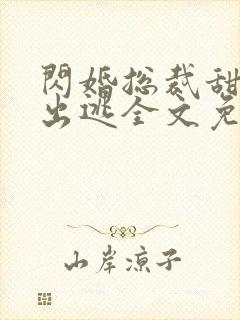 閃婚总裁甜
出逃全文免
山岸凉子